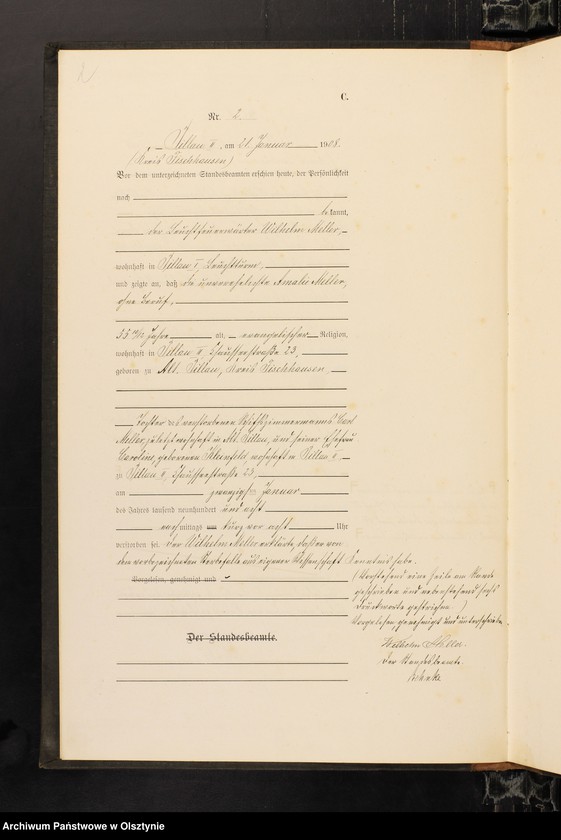 C.
Nr. 2.
Pillau II, am 21. Januar 1908.
(Kreis Fischhausen)
Vor dem unterzeichneten Standesbeamten erschien heute, der Persönlichkeit
nach
bekannt,
der Leuchtfeuerwärter Wilhelm Meller,
wohnhaft in Pillau I, Leuchtturm,
und zeigte an, daß die unverehelichte Amalie Meller,
ohne Beruf,
55 Jahre alt, evangelischer Religion,
wohnhaft in Pillau II, Chausseestraße 23,
geboren zu Alt Pillau, Kreis Fischhausen,
Tochter des verstorbenen Schiffszimmermanns Carl
Meller, zuletzt wohnhaft in Alt Pillau, und seiner Ehefrau
Caroline, geborenen wohnhaft in Pillau II,
zu Pillau II, Chausseestraße 23,
am zwanzigsten Januar
des Jahres tausend neunhundert und acht
nachmittags um kurz vor acht Uhr
verstorben sei. Der Wilhelm Meller erklärte, daß er von
dem vorbezeichneten Sterbefalle aus eigener Wissenschaft Kenntnis habe.
(Vorstehend eine Zeile am Rande
geschrieben und nebenstehend sechs
Druckworte gestrichen)
Vorgelesen, genehmigt und unterschrieben
Vorgelesen, genehmigt und
Wilhelm Meller
Der Standesbeamte.
Der Standesbeamte.
Archiwum Państwowe w Olsztynie